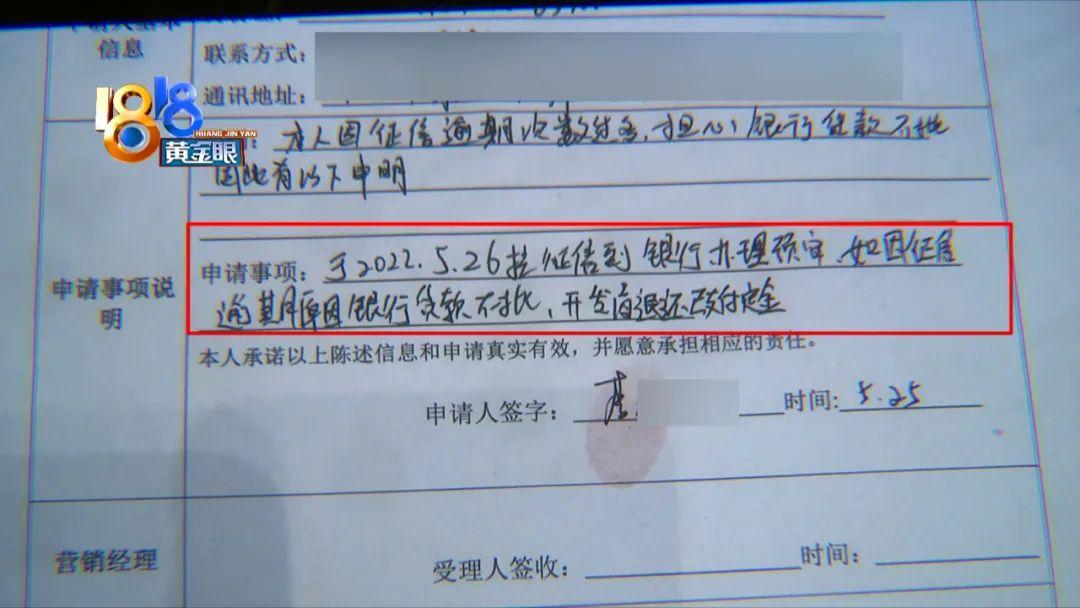 信息
联系方式：
通讯地址：
1818
HUANG JIN YAN
黄金眼
：本人因征信逾期次数过多，担心银行贷款不批
因此有以下申明
申请事项说
明
申请事项：于2022.5.26拉征信到银行办理预审，如因征信
逾期原因银行贷款不批，开发商退还已支付定金
本人承诺以上陈述信息和申请真实有效，并愿意承担相应的责任。
申请人签字：
时间：5.25
营销经理
受理人签收：
时间：